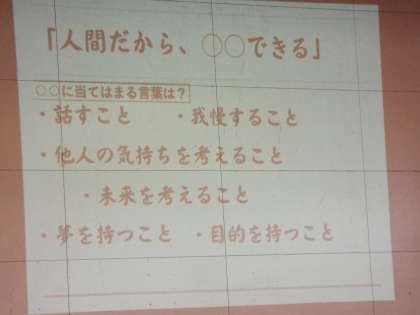 「人間だから、○○できる」
○○に当てはまる言葉は？
・話すこと ・我慢すること
・他人の気持ちを考えること
・未来を考えること
・夢を持つこと ・目的を持つこと